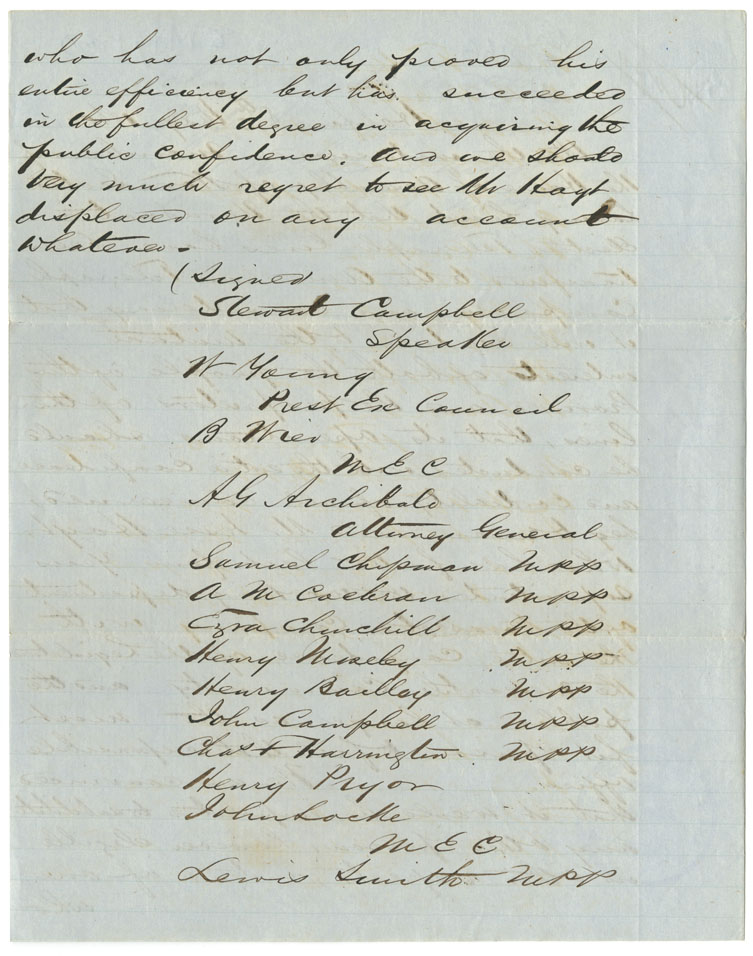 who has not only proved his
entire efficiency but has succeeded
in the fullest degree in acquiring the
public confidence. And we should
very much regret to see Mr Hoyt
displaced on any account
whatever -
(Signed
Stewart Campbell
Speaker
W Young
Prest Ex Council
B Wier
M E C
A G Archibald
Attorney General
Samuel Chipman MPP
A M Cochran MPP
Ezra Churchill MPP
Henry Moseley MPP
Henry Bailley MPP
John Campbell MPP
Chas F Harrington MPP
Henry Pryor
John Locke
M E C
Lewis Smith MPP